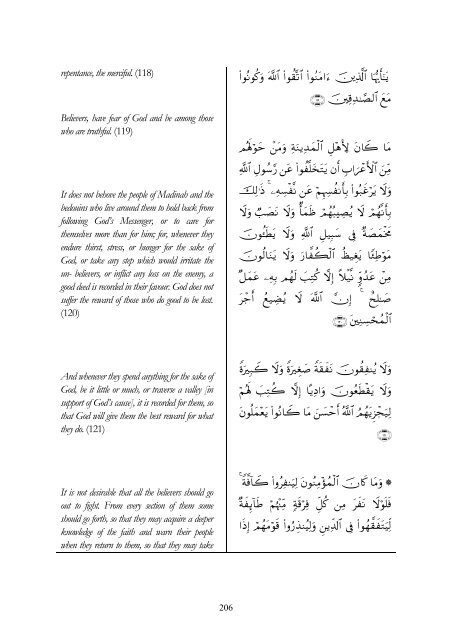 repentance, the merciful. (118)
Believers, have fear of God and be among those
who are truthful. (119)
It does not behove the people of Madinah and the
bedouins who live around them to hold back from
following God's Messenger, or to care for
themselves more than for him; for, whenever they
endure thirst, stress, or hunger for the sake of
God, or take any step which would irritate the
un- believers, or inflict any loss on the enemy, a
good deed is recorded in their favour. God does not
suffer the reward of those who do good to be lost.
(120)
And whenever they spend anything for the sake of
God, be it little or much, or traverse a valley [in
support of God's cause], it is recorded for them, so
that God will give them the best reward for what
they do. (121)
It is not desirable that all the believers should go
out to fight. From every section of them some
should go forth, so that they may acquire a deeper
knowledge of the faith and warn their people
when they return to them, so that they may take
يَٰٓأَيُّهَا ٱلَّذِينَ ءَامَنُوا۟ ٱتَّقُوا۟ ٱللَّهَ وَكُونُوا۟
مَعَ ٱلصَّٰدِقِينَ ﴿١١٩﴾
مَا كَانَ لِأَهْلِ ٱلْمَدِينَةِ وَمَنْ حَوْلَهُم
مِّنَ ٱلْأَعْرَابِ أَن يَتَخَلَّفُوا۟ عَن رَّسُولِ ٱللَّهِ
وَلَا يَرْغَبُوا۟ بِأَنفُسِهِمْ عَن نَّفْسِهِۦ ۚ ذَٰلِكَ
بِأَنَّهُمْ لَا يُصِيبُهُمْ ظَمَأٌ وَلَا نَصَبٌ وَلَا
مَخْمَصَةٌ فِى سَبِيلِ ٱللَّهِ وَلَا يَطَـُٔونَ
مَوْطِئًا يَغِيظُ ٱلْكُفَّارَ وَلَا يَنَالُونَ
مِنْ عَدُوٍّ نَّيْلًا إِلَّا كُتِبَ لَهُم بِهِۦ عَمَلٌ
صَٰلِحٌ ۚ إِنَّ ٱللَّهَ لَا يُضِيعُ أَجْرَ
ٱلْمُحْسِنِينَ ﴿١٢٠﴾
وَلَا يُنفِقُونَ نَفَقَةً صَغِيرَةً وَلَا كَبِيرَةً
وَلَا يَقْطَعُونَ وَادِيًا إِلَّا كُتِبَ لَهُمْ
لِيَجْزِيَهُمُ ٱللَّهُ أَحْسَنَ مَا كَانُوا۟ يَعْمَلُونَ
﴿١٢١﴾
۞ وَمَا كَانَ ٱلْمُؤْمِنُونَ لِيَنفِرُوا۟ كَآفَّةً ۚ
فَلَوْلَا نَفَرَ مِن كُلِّ فِرْقَةٍ مِّنْهُمْ طَآئِفَةٌ
لِّيَتَفَقَّهُوا۟ فِى ٱلدِّينِ وَلِيُنذِرُوا۟ قَوْمَهُمْ إِذَا
206